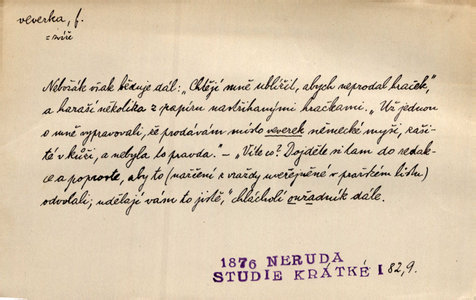 veverka, f.
= zvíře
Nebožák však běduje dál: „Chtějí mně ublížit, abych neprodal hraček“,
a haraší několika z papíru nastříhanými hračkami. „Už jednou
o mně vypravovali, že prodávám místo veverek německé myši, zaši-
té v kůži, a nebyla to pravda.“ – „Víte co? Dojděte si tam do redak-
ce a poproste, aby to (nařčení z vraždy uveřejněné v pražském listu)
odvolali; udělají vám to jistě,“ chlácholí ouřadník dále.
1876 NERUDA
STUDIE KRÁTKÉ I 82,9.